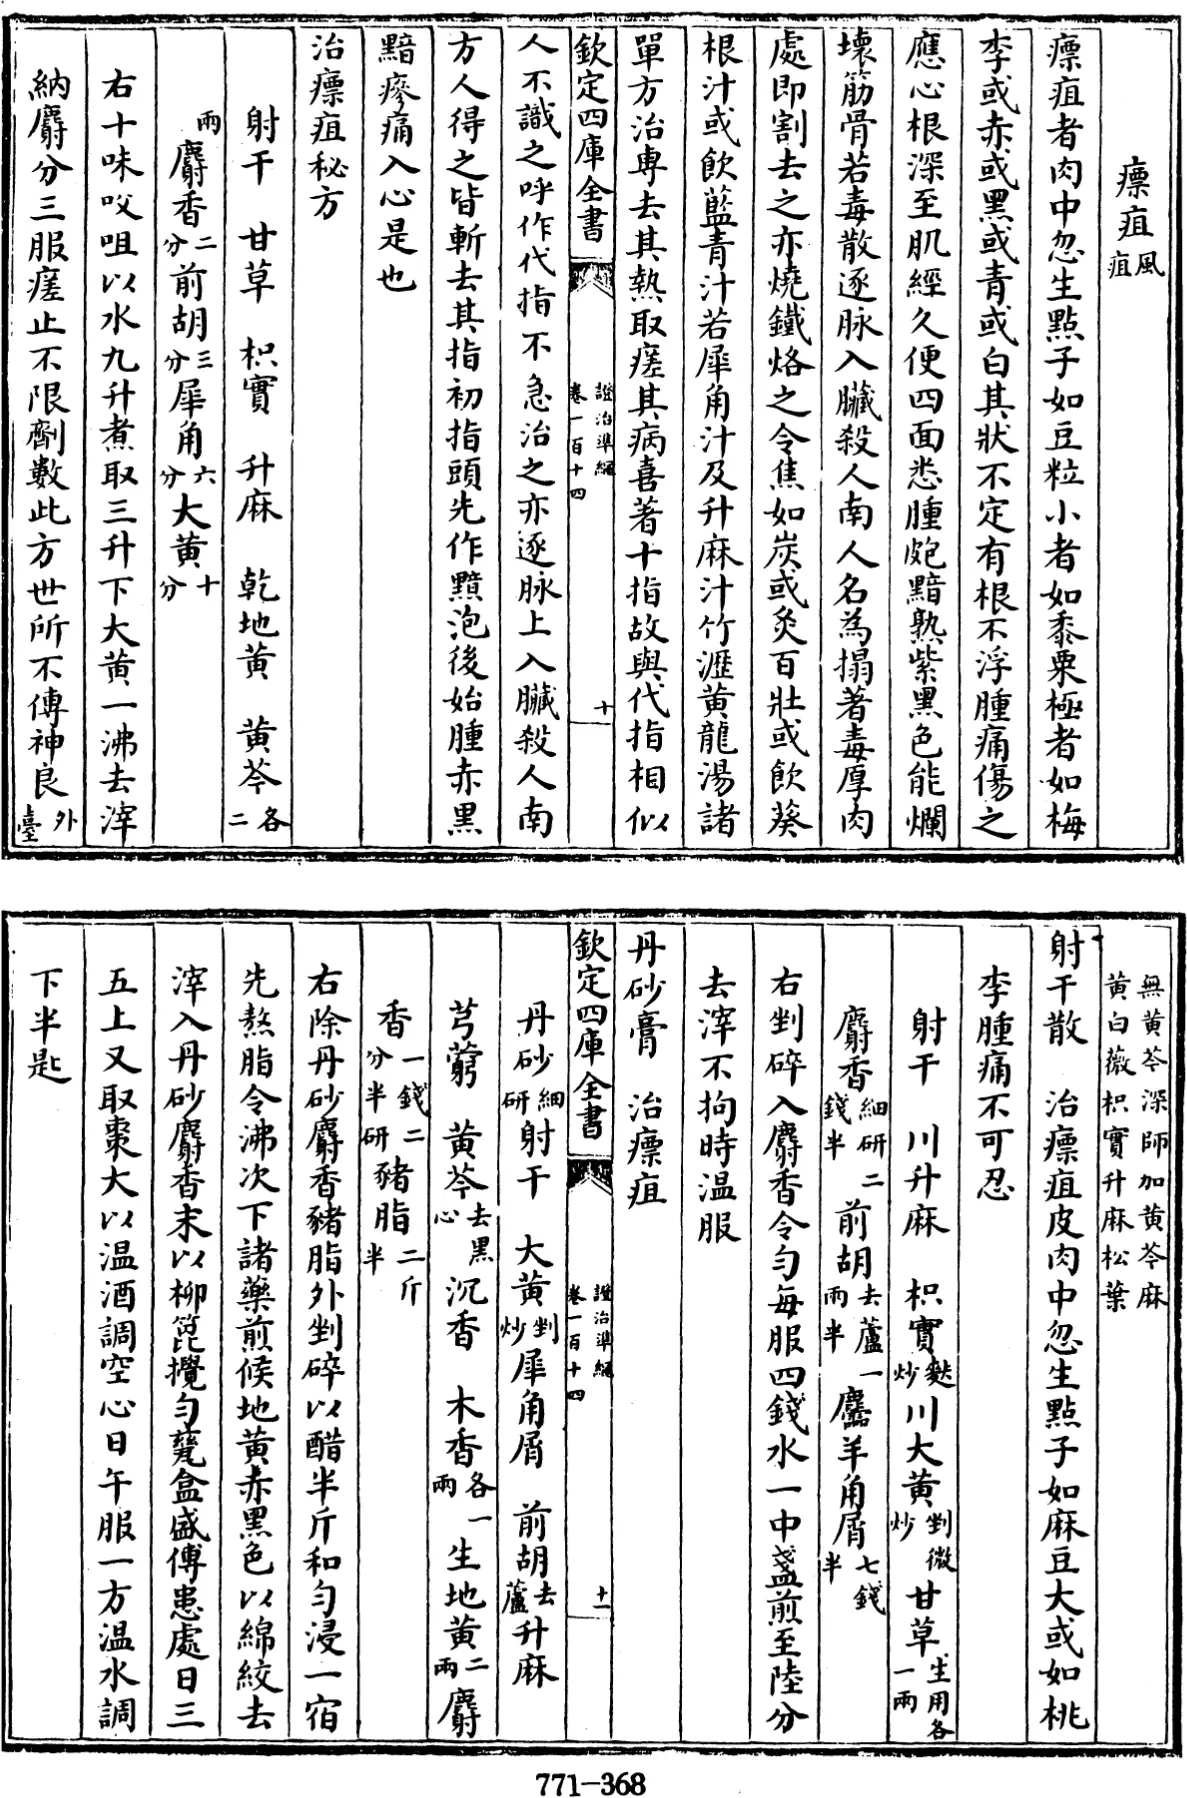 瘭疽風疽
瘭疽者肉中忽生點子如豆粒小者如黍粟極者如梅
李或赤或黑或青或白其狀不定有根不浮腫痛傷之
應心根深至肌經久便四面悉腫皰黯熟紫黑色能爛
壞筋骨若毒散逐脉入臟殺人南人名為搨著毒厚肉
處即割去之亦燒鐵烙之令焦如炭或灸百壯或飲葵
根汁或飲藍青汁若犀角汁及升麻汁竹瀝黄龍湯諸
單方治專去其熱取瘥其病喜著十指故與代指相似
欽定四庫全書 證治準繩卷一百十四 十
人不識之呼作代指不急治之亦逐脉上入臟殺人南
方人得之皆斬去其指初指頭先作黶泡後始腫赤黑
黯瘮痛入心是也
治瘭疽秘方
射干 甘草 枳實 升麻 乾地黄 黄芩各二
兩麝香二分前胡三分犀角六分大黄十分
右十味㕮咀以水九升煮取三升下大黄一沸去滓
納麝分三服瘥止不限劑數此方世所不傳神良外臺
無黄芩深師加黄芩麻黄白薇枳實升麻松葉
射干散 治瘭疽皮肉中忽生點子如麻豆大或如桃
李腫痛不可忍
射干 川升麻 枳實麩炒川大黄剉微炒 甘草生用各一兩
麝香細研二錢半 前胡去蘆一兩半麢羊角屑七錢半
右剉碎入麝香令勻每服四錢水一中盞煎至陸分
去滓不拘時温服
丹砂膏 治瘭疽
欽定四庫全書 證治準繩卷一百十四 十一
丹砂細研射干 大黄剉炒犀角屑 前胡去蘆升麻
芎藭 黄芩去黑心沉香 木香各一兩 生地黄二兩麝
香一錢二分半研豬脂二斤半
右除丹砂麝香豬脂外剉碎以醋半斤和勻浸一宿
先熬脂令沸次下諸藥煎候地黄赤黑色以綿絞去
滓入丹砂麝香末以柳箆攪勻甆盒盛傅患處日三
五上又取棗大以温酒調空心日午服一方温水調
下半匙
771-368